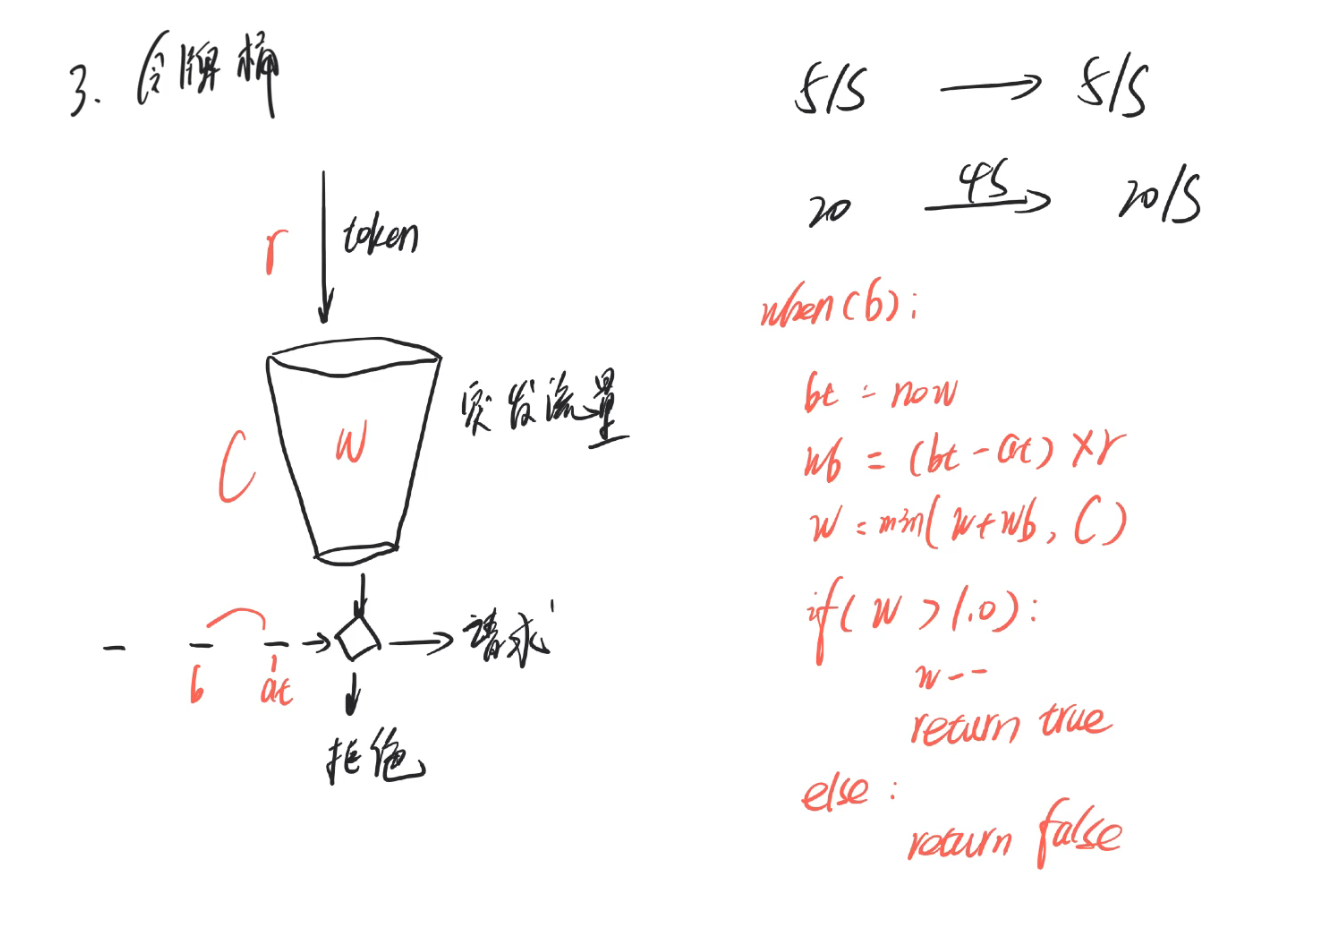 3. 令牌桶
r
token
C
W
突发流量
b
at
请求
拒绝
5/S → 5/S
20 4S → 20/S
when(b):
bt = now
wb = (bt - at) × r
w = min(w + wb, C)
if( w > 1.0):
w--
return true
else:
return false